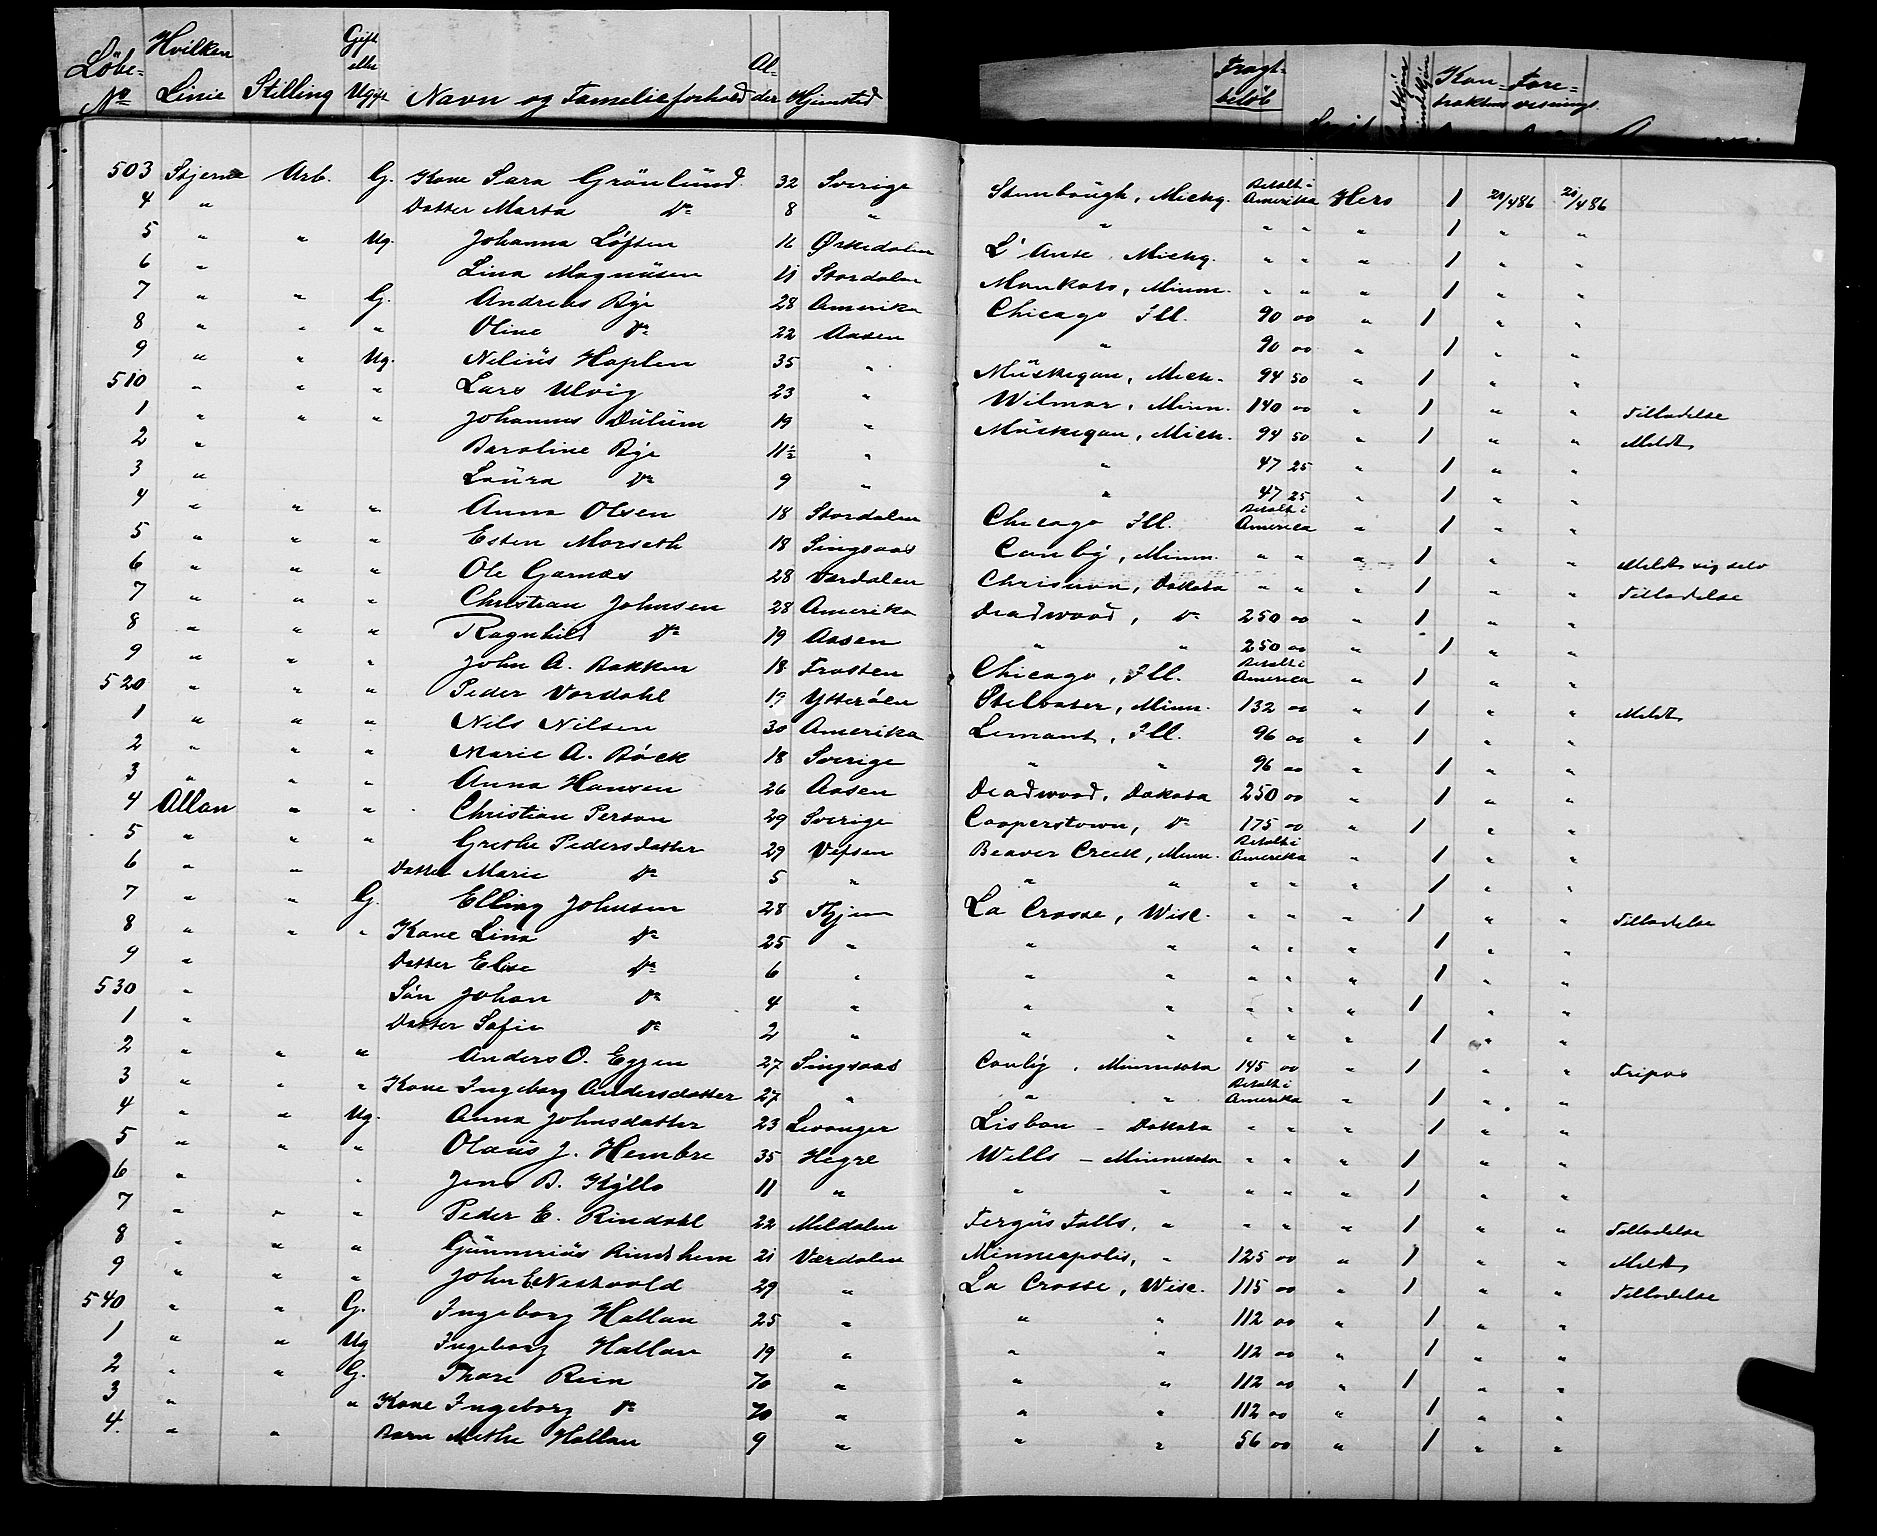 Löbe- No Hvilken Linie Stilling Gift eller Ugift Navn og Familieforhold Al- der Hjemsted Fragt- beløb Mandkjøn Kvindekjøn Kon- traktens Fore- visnings
503 Stjerne Arb. G. Kone Sara Grönlund 32 Sverige Stambaugh, Michg. Betalt i Amerika Hero 1 20/486 21/486
4 " Datter Marta Do 8 " " " " " 1 " "
5 " " Ug. Johanna Løften 16 Ørkedalen L'Anse, Michg. " " " 1 " "
6 " Lina Magnusen 11 Stordalen Mankato, Minn. " " " 1 " "
7 " " G. Andreas Bye 28 Amerika Chicago Ill. 90 00 " 1 " "
8 " " " Oline Do 22 Aasen " 90 00 " 1 " "
9 " " Ug. Nelius Hoplen 35 " Muskegan, Mich. 94 50 " 1 " "
510 " " " Lars Ulvig 23 " Wilmar, Minn. 140 00 " 1 " " Tilladelse
1 " " " Johannes Dulum 19 " Muskegan, Mich. 94 50 " 1 " " Meldt
2 " Beroline Bye 11½ " " 47 25 " 1 " "
3 " Laura Do 9 " " 47 25 " 1 " "
4 " " " Anna Olsen 18 Stordalen Chicago Ill. Betalt i America " 1 " "
5 " " " Esten Morseth 18 Singsaas Canby, Minn. " " " 1 " " Meldt sig selv
6 " " " Ole Garnæs 28 Værdalen Dakota " " " 1 " " Tilladelse
7 " " " Christian Johnsen 28 Amerika Deadwood, Do 250 00 " 1 " "
8 " " " Ragnhild Do 19 Aasen " " 250 00 " 1 " "
9 " " " John A. Bakken 18 Frosten Chicago, Ill. Betalt i America " 1 " "
520 " " " Peder Vordahl 19 Ytterøen Stilvater, Minn. 132 00 " 1 " " Meldt
1 " " " Nels Nilsen 30 Amerika Lemont, Ill. 96 00 " 1 " "
2 " " " Marie A. Böck 18 Sverige " " 96 00 " 1 " "
3 " " " Anna Hansen 26 Aasen Deadwood, Dakota 250 00 " 1 " "
4 Allan " " Christian Person 29 Sverige Cooperstown, Do 175 00 " 1 " "
5 " " " Grethe Pedersdatter 29 Vefsen Beaver Creek, Minn. Betalt i Amerika " 1 " "
6 " " Datter Marie Do 5 " " " " " " 1 " "
7 " " G. Elling Johnsen 28 Hjem La Crosse, Wisc. " " " 1 " " Tilladelse
8 " " " Kone Lina Do 25 " " " " " " 1 " "
9 " Datter Elise Do 6 " " " " " " 1 " "
530 " Søn Johan Do 4 " " " " " " 1 " "
1 " Datter Sofie Do 2 " " " " " " 1 " "
2 " " " Anders O. Eggen 27 Singsaas Canby, Minnesota 145 00 " 1 " " Fripas
3 " " " Kone Ingeborg Andersdatter 27 " " " Betalt i Amerika " 1 " "
4 " " Ug. Anna Johnsdatter 23 Levanger Lisbon - Dakota " " " 1 " "
5 " " " Olaus J. Hembre 35 Hegre Wells - Minnesota " " " 1 " "
6 " " Jens B. Kyllo 11 " " " " " " 1 " "
7 " " " Peder E. Rindahl 22 Meldalen Fergus Falls, " " " " 1 " " Tilladelse
8 " " " Gunnerius Rindshem 21 Værdalen Minneapolis, " 125 00 " 1 " " Meldt
9 " " " John E Nestvold 29 " La Crosse, Wisc. 115 00 " 1 " " Tilladelse
540 " " G. Ingeborg Hallan 25 " " " 112 00 " 1 " "
1 " " Ug Ingeborg Hallan 19 " " " 112 00 " 1 " "
2 " " G. Thore Rein 70 " " " 112 00 " 1 " "
3 " " Kone Ingeborg Do 70 " " " 112 00 " 1 " "
4. " " Barn Methe Hallan 9 " " " 56 00 " 1 " "